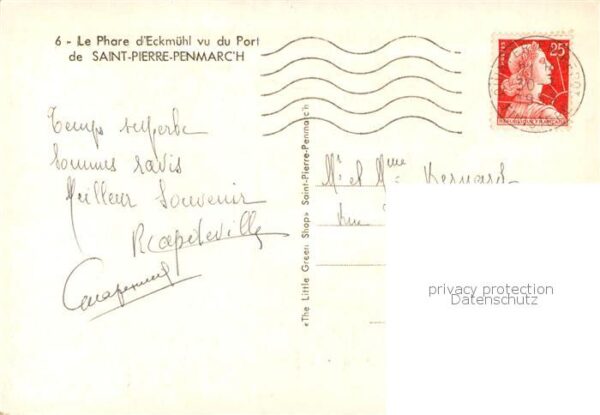 6 - Le Phare d'Eckmühl vu du Port
de SAINT-PIERRE-PENMARC'H
25F
30
Temps superbe
Sommes ravis
Meilleur Souvenir
«The Little Green Shop» Saint-Pierre-Penmarc'h
Mr et Mme
Rue
privacy protection
Datenschutz